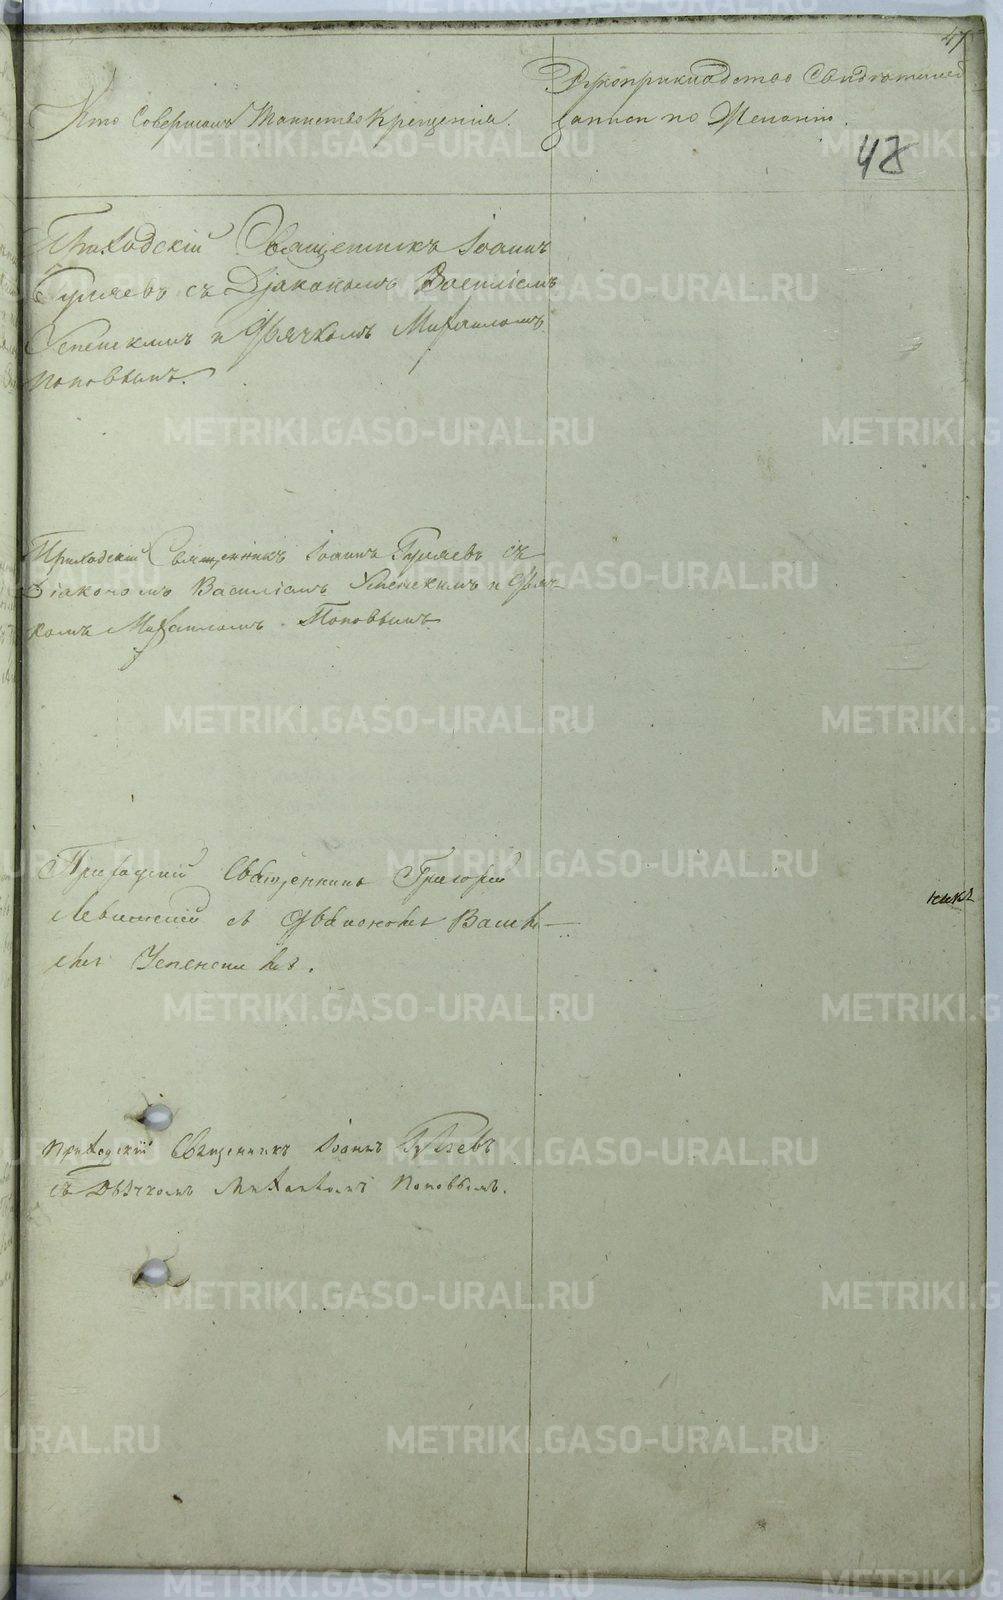 47
48
Кто Совершалъ Таинство Крещенія.
Рукоприкладство Свидѣтелей
записи по Желанію.
Приходскій Священникъ Іоаннъ
Гуляевъ съ Діакономъ Василіемъ
Успенскимъ и Дьячкомъ Михаиломъ
Поповымъ.
Приходскій Священникъ Іоаннъ Гуляевъ съ
Діакономъ Василіемъ Успенскимъ и Дьяч-
комъ Михаиломъ Поповымъ
Приходскій Священникъ Григорій
съ Діакономъ Василі-
емъ Успенскимъ.
никъ
Приходскій Священникъ Іоаннъ Гуляевъ
съ Дьячкомъ Михаиломъ Поповымъ.
METRIKI.GASO-URAL.RU